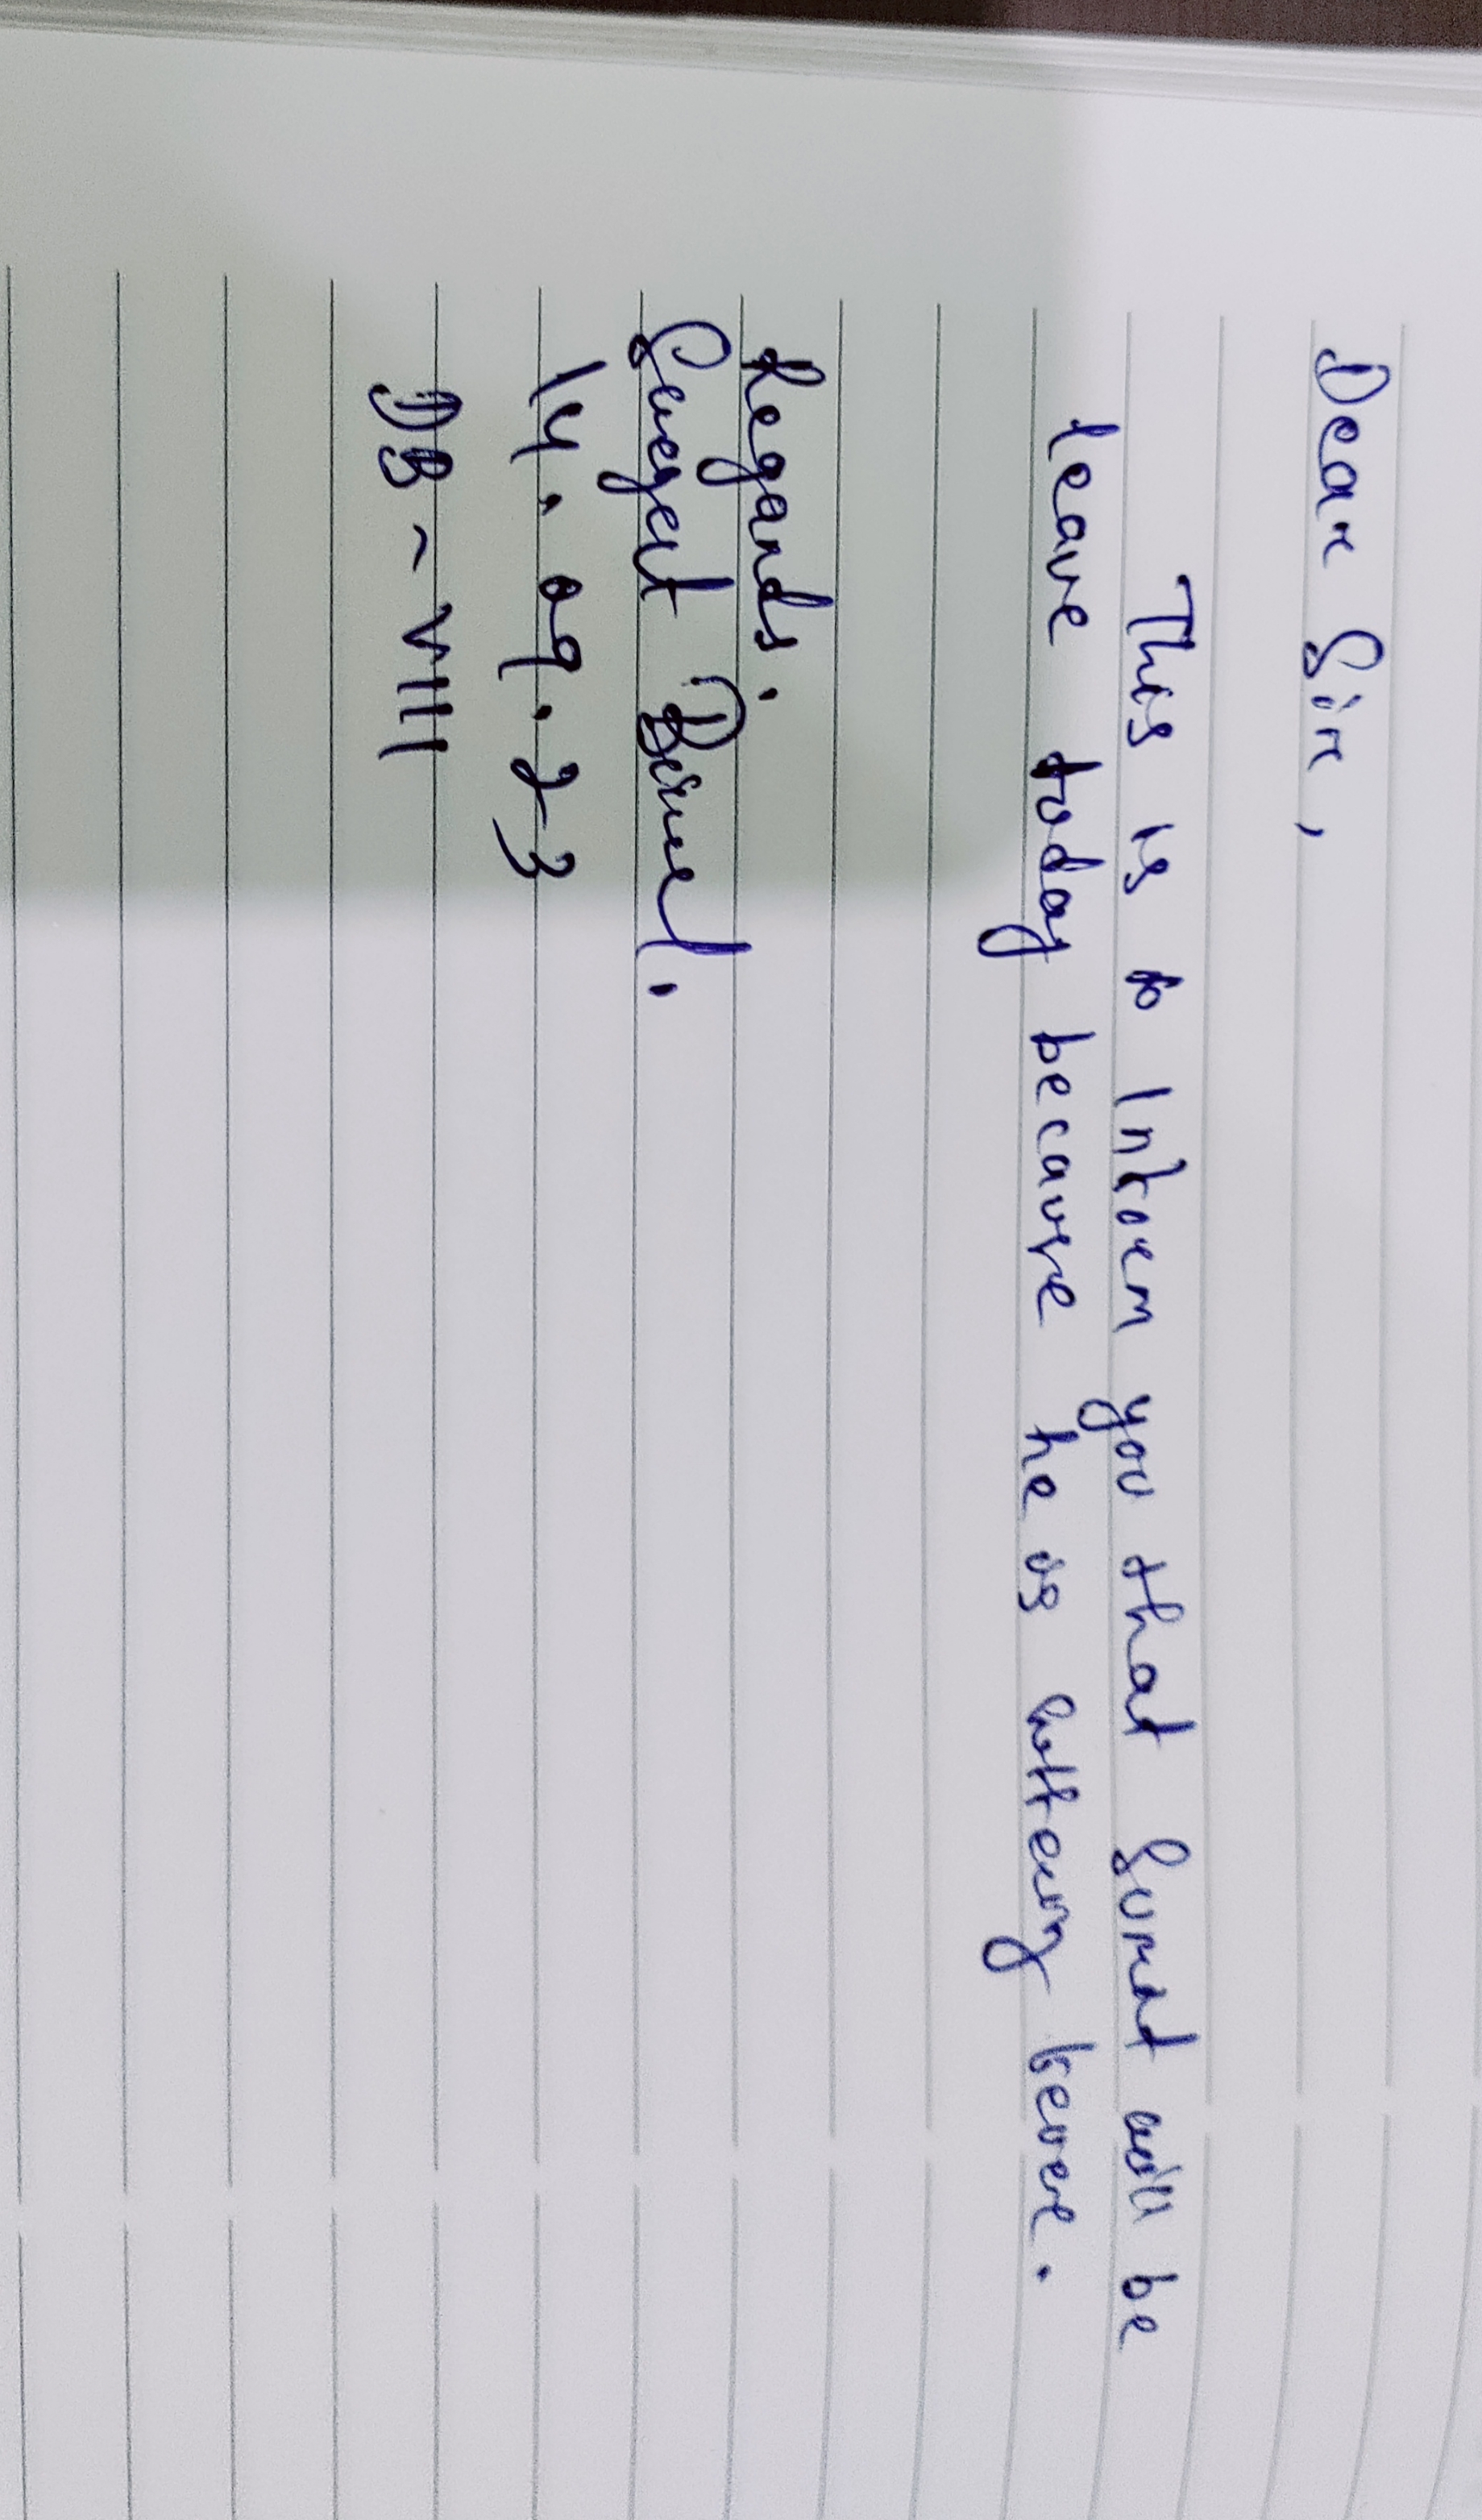 Dear Sir,
This is to Inform you that Surat will be
leave today because he is suffering fever.
Regards.
14.09.23
DB-VIII